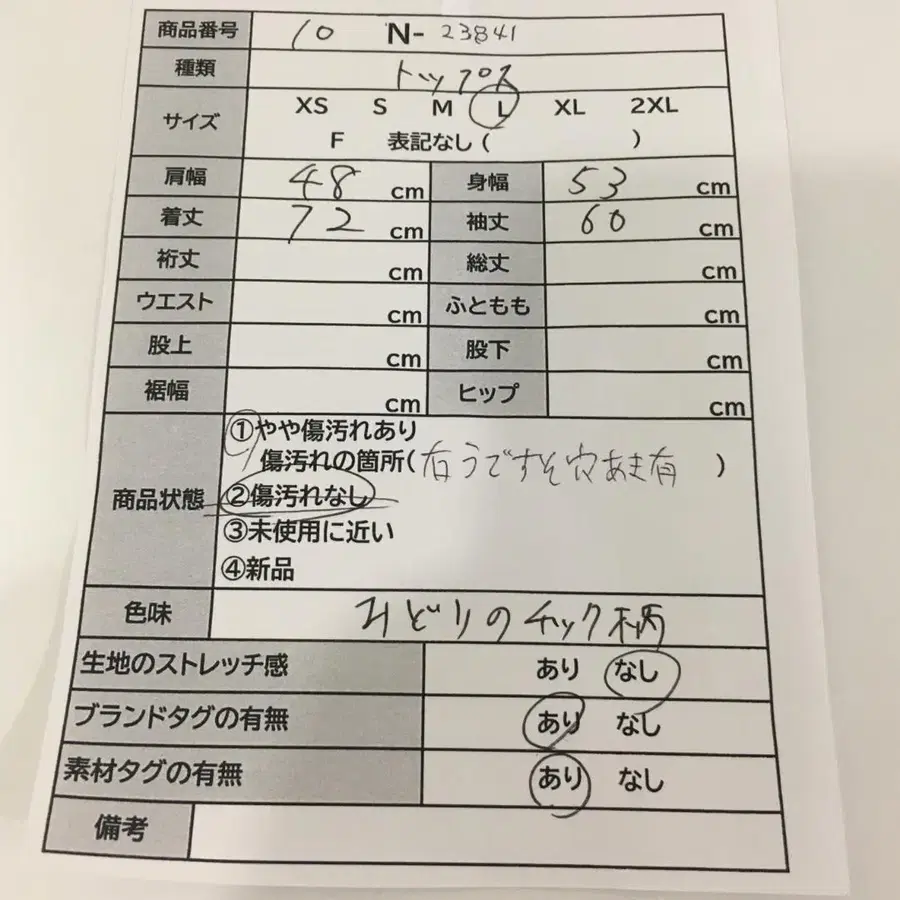 商品番号 10 N-23841
種類 トップス
サイズ XS S M L XL 2XL
F 表記なし( )
肩幅 48 cm 身幅 53 cm
着丈 72 cm 袖丈 60 cm
裄丈 cm 総丈 cm
ウエスト cm ふともも cm
股上 cm 股下 cm
裾幅 cm ヒップ cm
商品状態 ①やや傷汚れあり
傷汚れの箇所(右うですそ穴あき有)
②傷汚れなし
③未使用に近い
④新品
色味 みどりのチック柄
生地のストレッチ感 あり なし
ブランドタグの有無 あり なし
素材タグの有無 あり なし
備考